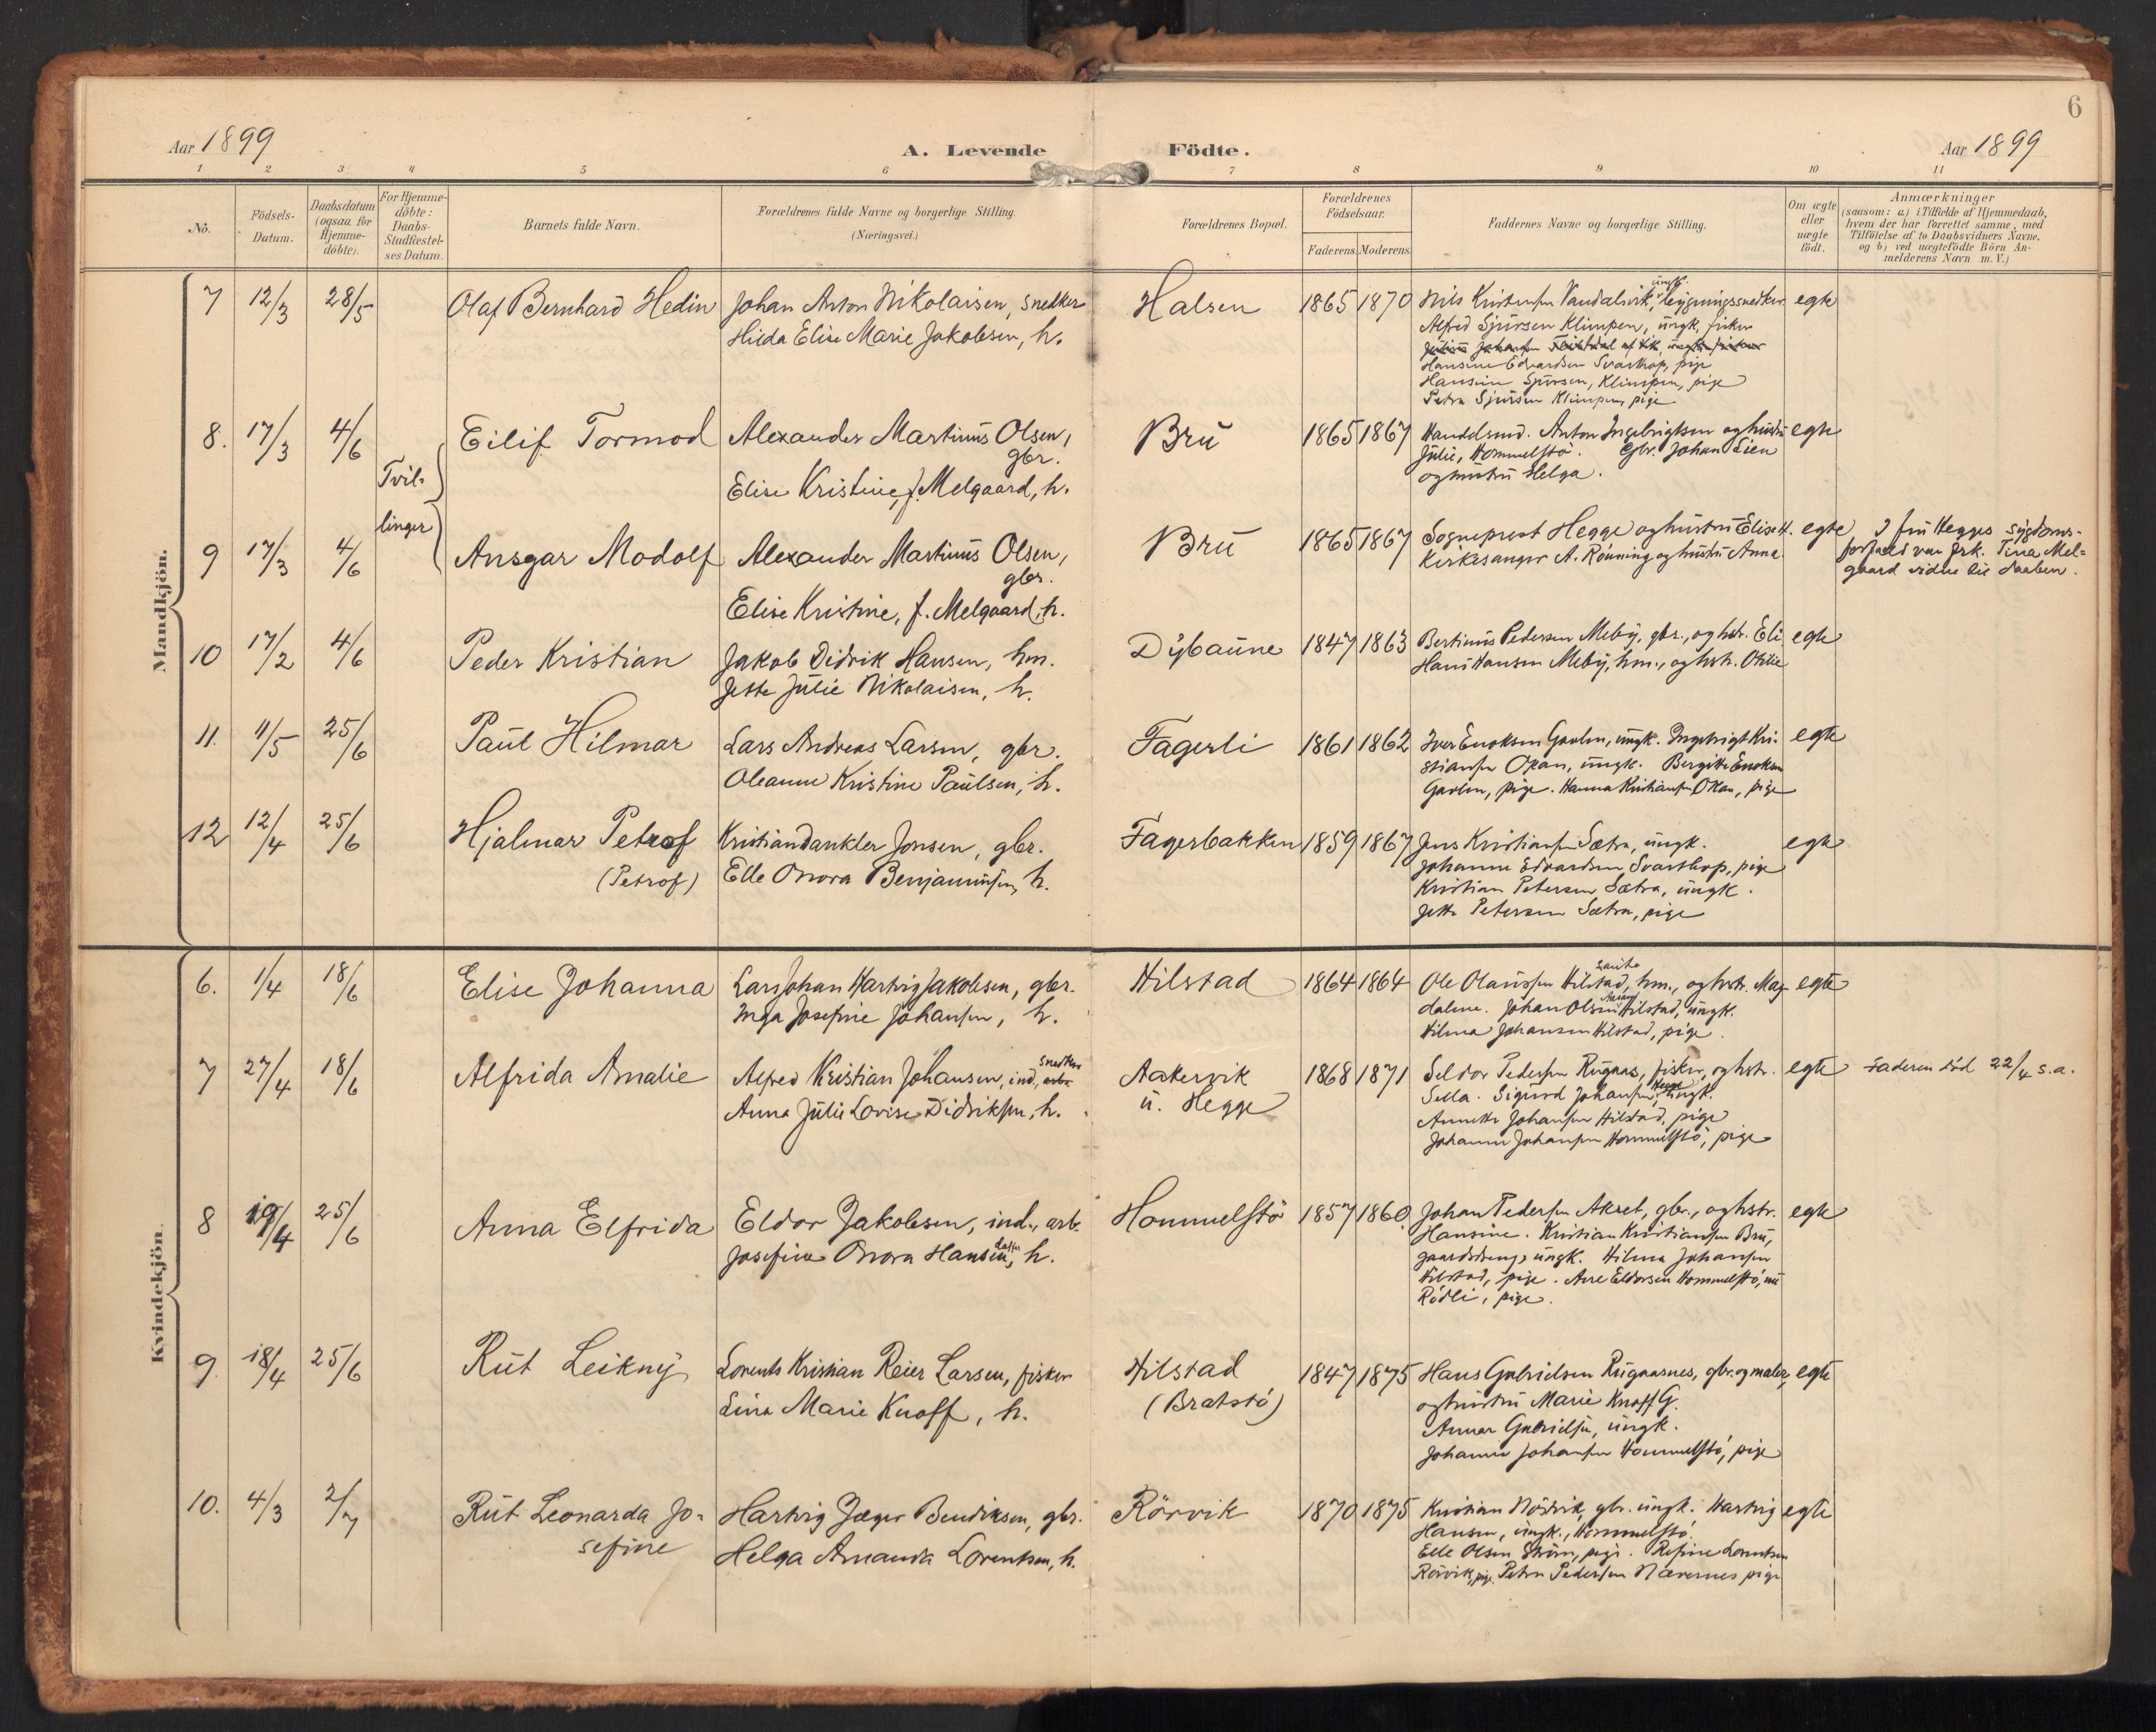 6
Aar 1899
A. Levende Födte.
Aar 1899
1 2 3 4 5 6 7 8 9 10 11
No.
Födsels-
Datum.
Daabsdatum
(ogsaa for
Hjemme-
döbte).
For Hjemme-
döbte:
Daabs-
Stadfæstel-
ses Datum.
Barnets fulde Navn.
Forældrenes fulde Navne og borgerlige Stilling.
(Næringsvei.)
Forældrenes Bopæl.
Forældrenes
Födselsaar.
Faderens. Moderens.
Faddernes Navne og borgerlige Stilling.
Om ægte
eller
uægte
födt.
Anmærkninger
(saasom: a) i Tilfælde af Hjemmedaab,
hvem der har forrettet samme, med
Tilföielse af to Daabsvidners Navne,
og b) ved uægtefödte Börn An-
melderens Navn m. V.)
Mandkjön.
7 12/3 28/5 Olaf Bernhard Hedin
Johan Anton Nikolaisen, snedker
Hilda Elise Marie Jakobsen, h.
Halsen 1865 1870
ungk.
Nils Kristensen Vandalsvik, bygningssnedker
Alfred Sjursen Klimpen, ungk, fisker
Hansine Edvardsen Svarthop, pige
Hansine Sjursen, Klimpen, pige
Petra Sjursen Klimpen, pige
egte
8. 17/3 4/6 Tvil- Eilif Tormod
Alexander Martinus Olsen,
gbr.
Elise Kristine, f. Melgaard, h.
Bru 1865 1867
Handelsmd. Anton Ingebrigtsen og hustru
Julie, Hommelstø. Gbr. Johan Lien
og hustru Helga.
egte
9 17/3 4/6 linger Ansgar Modolf
Alexander Martinus Olsen,
gbr.
Elise Kristine, f. Melgaard, h.
Bru 1865 1867
Sogneprest Hegge og hustru Elise H.
Kirkesanger A. Rønning og hustru Anna
egte
I fru Hegges sygdoms-
forfald var frk. Tina Mel-
gaard vidne til daaben.
10 17/2 4/6 Peder Kristian
Jakob Didrik Hansen, hm.
Jette Julie Nikolaisen, h.
Dybaune 1847 1863
Bertinus Pedersen Meby, gbr., og hstr. Eli.
Hans Hansen Meby, hm., og hstr. Otilie
egte
11. 11/5 25/6 Paul Hilmar
Lars Andreas Larsen, gbr.
Oleanne Kristine Paulsen, h.
Fagerli 1861 1862
Iver Enoksen Gaolen, ungk. Ingebrigt Kri-
stiansen Okan, ungk. Bergitte Enoksen
Gaolen, pige. Hanna Kristiansen Okan, pige
egte
12 12/4 25/6 Hjalmar Petrof
(Petrof)
Kristian Dankler Jonsen, gbr.
Elle Onora Benjaminsen, h.
Fagerbakken 1859 1867
Jens Kristiansen Sætra, ungk.
Johanne Edvardsen Svarthop, pige
Kristian Petersen Sætra, ungk.
Jette Petersen Sætra, pige
egte
Kvindekjön.
6. 1/4 18/6 Elise Johanna
Lars Johan Hartvig Jakobsen, gbr.
Inga Josefine Johansen, h.
Hilstad 1864 1864
Ole Olaussen Hilstad, hm., og hstr. Mag-
dalene. Johan Olsen Hilstad, ungk.
Hilma Johansen Hilstad, pige
egte
7 27/4 18/6 Alfrida Amalie
snedker
Alfred Kristian Johansen, ind. arb.
Anna Julie Lovise Didriksen, h.
Aakervik
u. Hegge
1868 1871
Seldor Pedersen Rugaas, fisker, og hstr.
Sella. Sigurd Johansen Hegge, ungk.
Annette Johansen Hilstad, pige
Johanna Johansen Hommelstø, pige
egte
Faderen död 22/4 s.a.
8 19/4 25/6 Anna Elfrida
Eldor Jakobsen, ind., arb.
Josefine Onora Hansdatter, h.
Hommelstø 1857 1860.
Johan Pedersen Akset, gbr., og hstr.
Hansine. Kristian Kristiansen Bru,
gaardsdreng, ungk. Hilma Johansen
Hilstad, pige. Arre Eldorsen Hommelstø, nu
Rødli, pige.
egte
9. 18/4 25/6 Rut Leikny
Lorents Kristian Reier Larsen, fisker
Lina Marie Knoff, h.
Hilstad
(Bratstø)
1847 1875
Hans Gabrielsen Rugaasnes, gbr. og maler,
og hustru Marie Knoff G.
Annar Gabrielsen, ungk.
Johanna Johansen Hommelstø, pige
egte
10. 4/3 2/7 Rut Leonarda Jo-
sefine
Hartvig Jæger Bendiksen, gbr.
Helga Amanda Lorentsen, h.
Rørvik 1870 1875
Kristian Nordvik, gbr. ungk. Hartvig
Hansen, ungk., Hommelstø.
Elle Olsen Strøm, pige. Refine Lorentsen
Rørvik, pige. Petra Pedersen Nærenes pige
egte